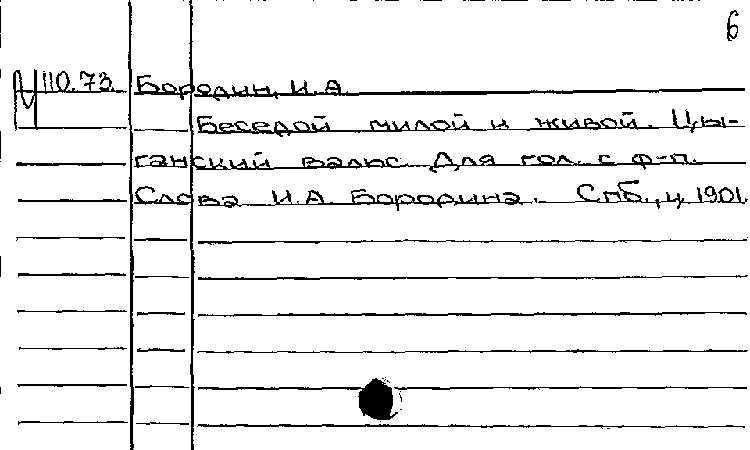 6
М 110.73. Бородин, И.А.
Беседой милой и живой. Цы-
ганский вальс. Для гол. с ф-п.
Слова И.А. Бородина. Спб., ц. 1901.